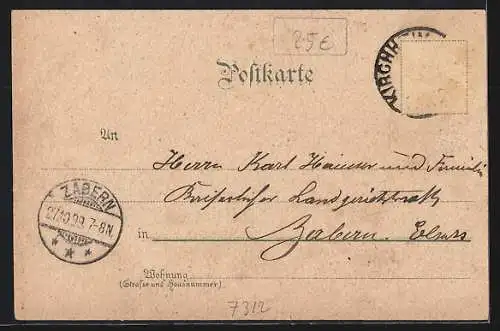 25€
Postkarte
KIRCHH
An
Herrn Karl Hauser und Familie
Kaiserlicher Landgerichtsrath
in Zabern. Elsass
ZABERN
27.10.99. 7-8N.
Wohnung
(Straße und Hausnummer)
7312